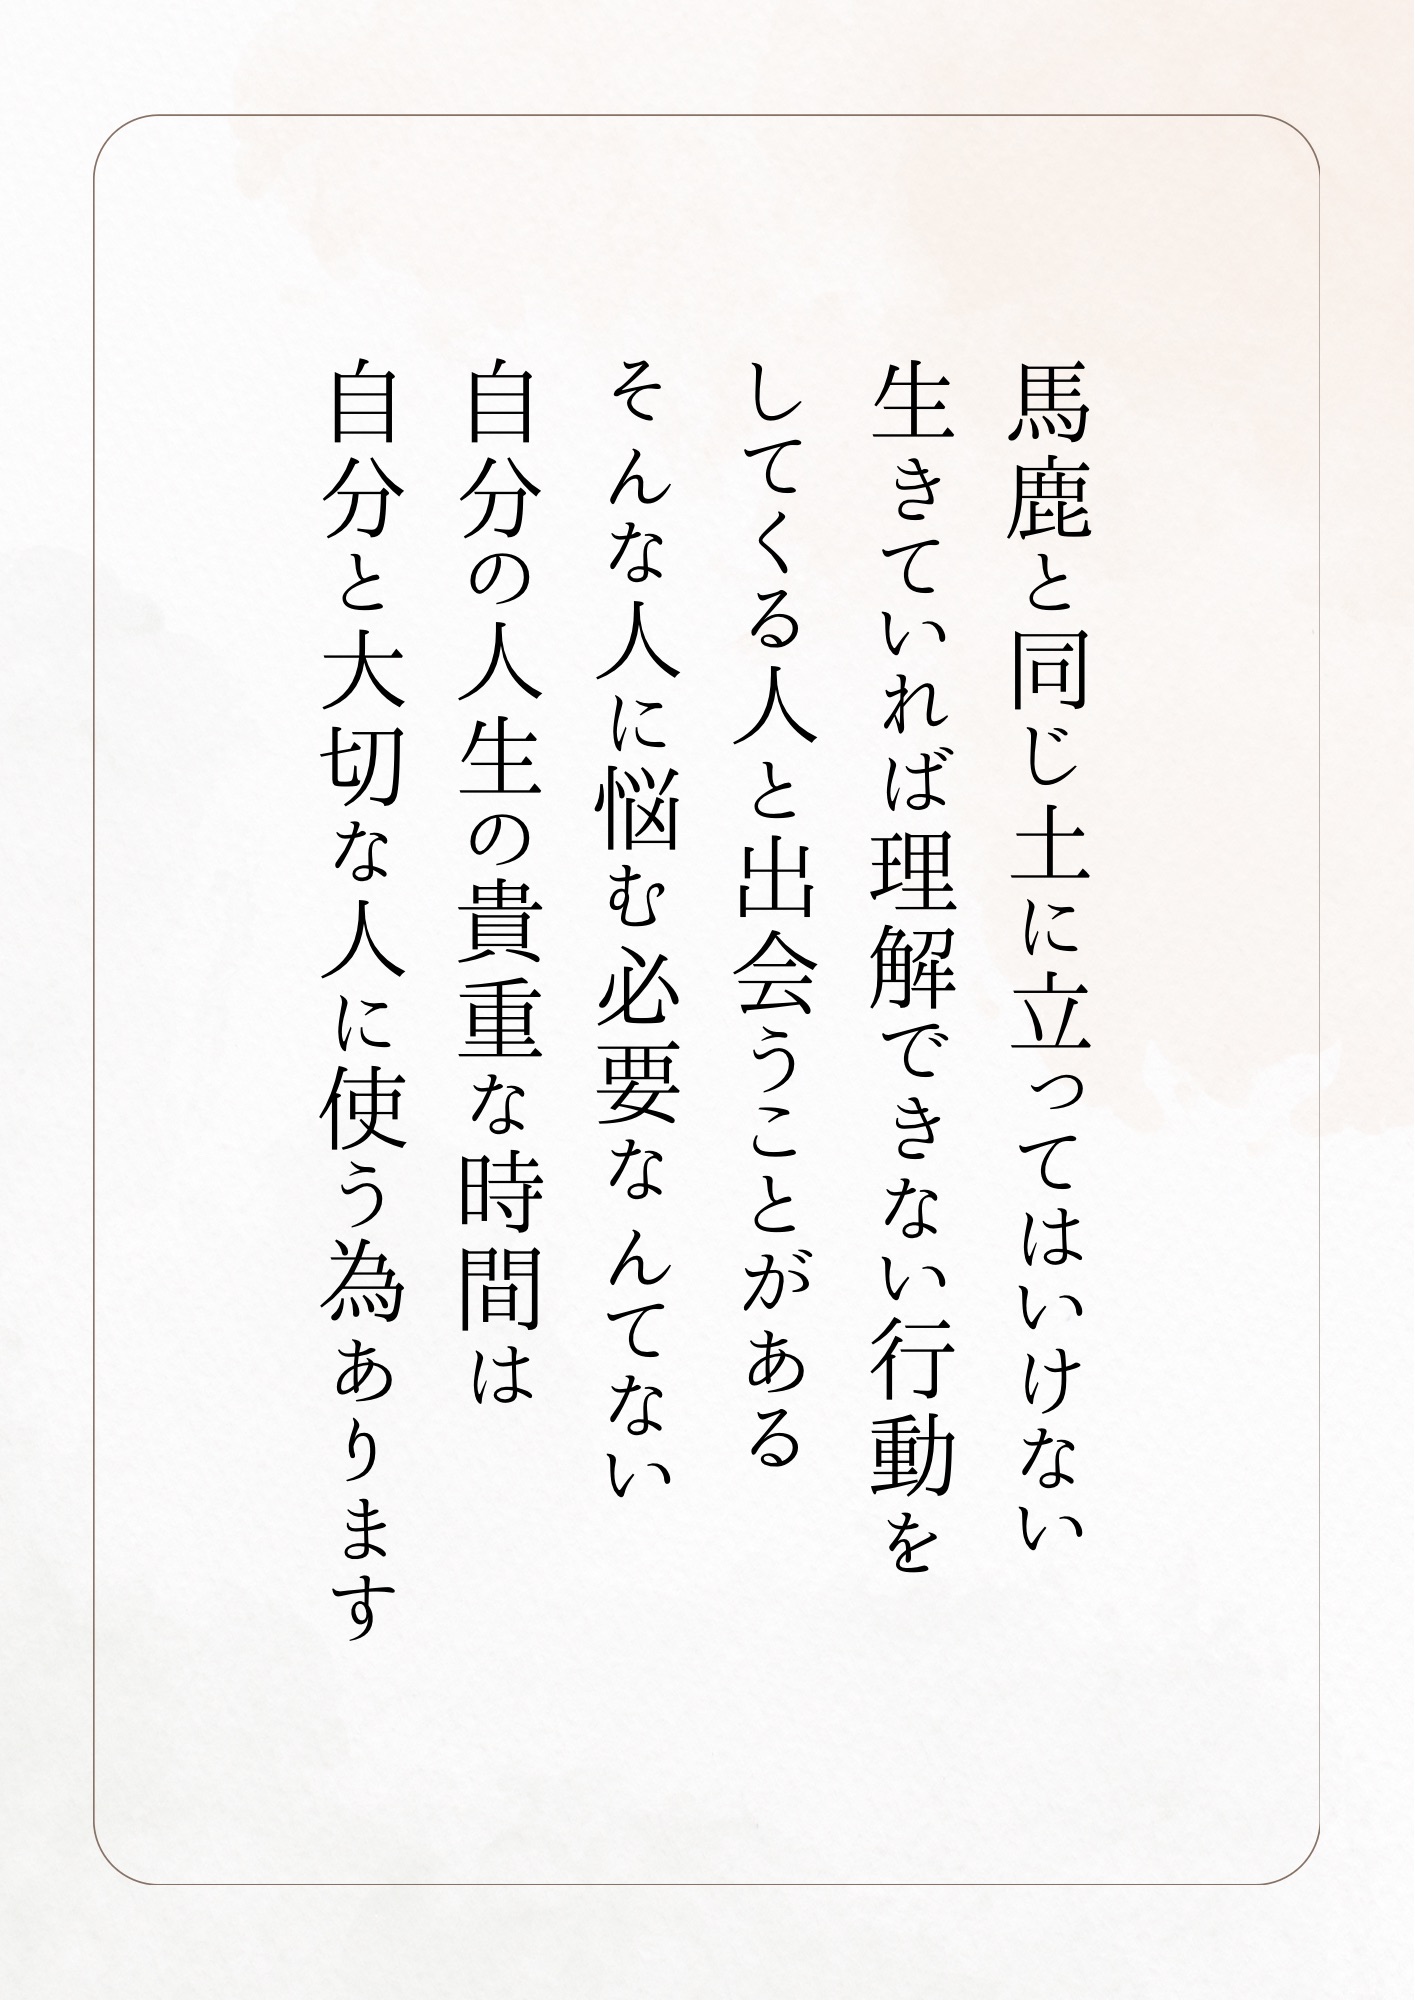 馬鹿と同じ土に立ってはいけない
生きていれば理解できない行動を
してくる人と出会うことがある
そんな人に悩む必要なんてない
自分の人生の貴重な時間は
自分と大切な人に使う為あります